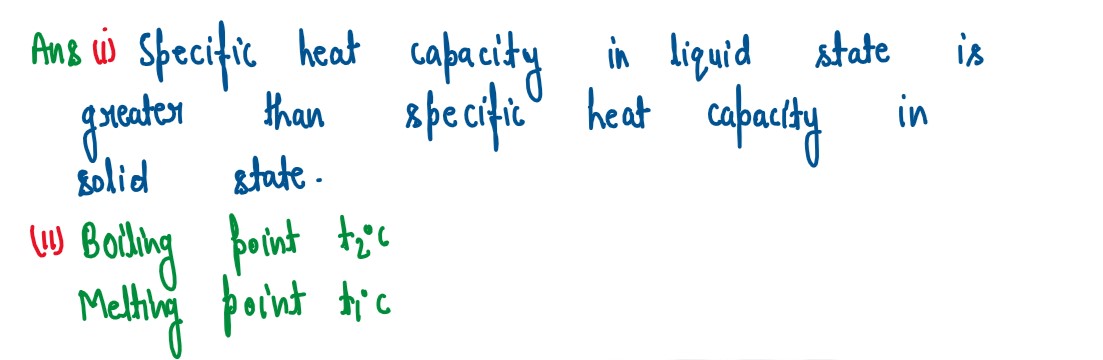 Ans (i) Specific heat capacity in liquid state is
greater than specific heat capacity in
solid state.
(ii) Boiling point t₂°C
Melting point t₁°C